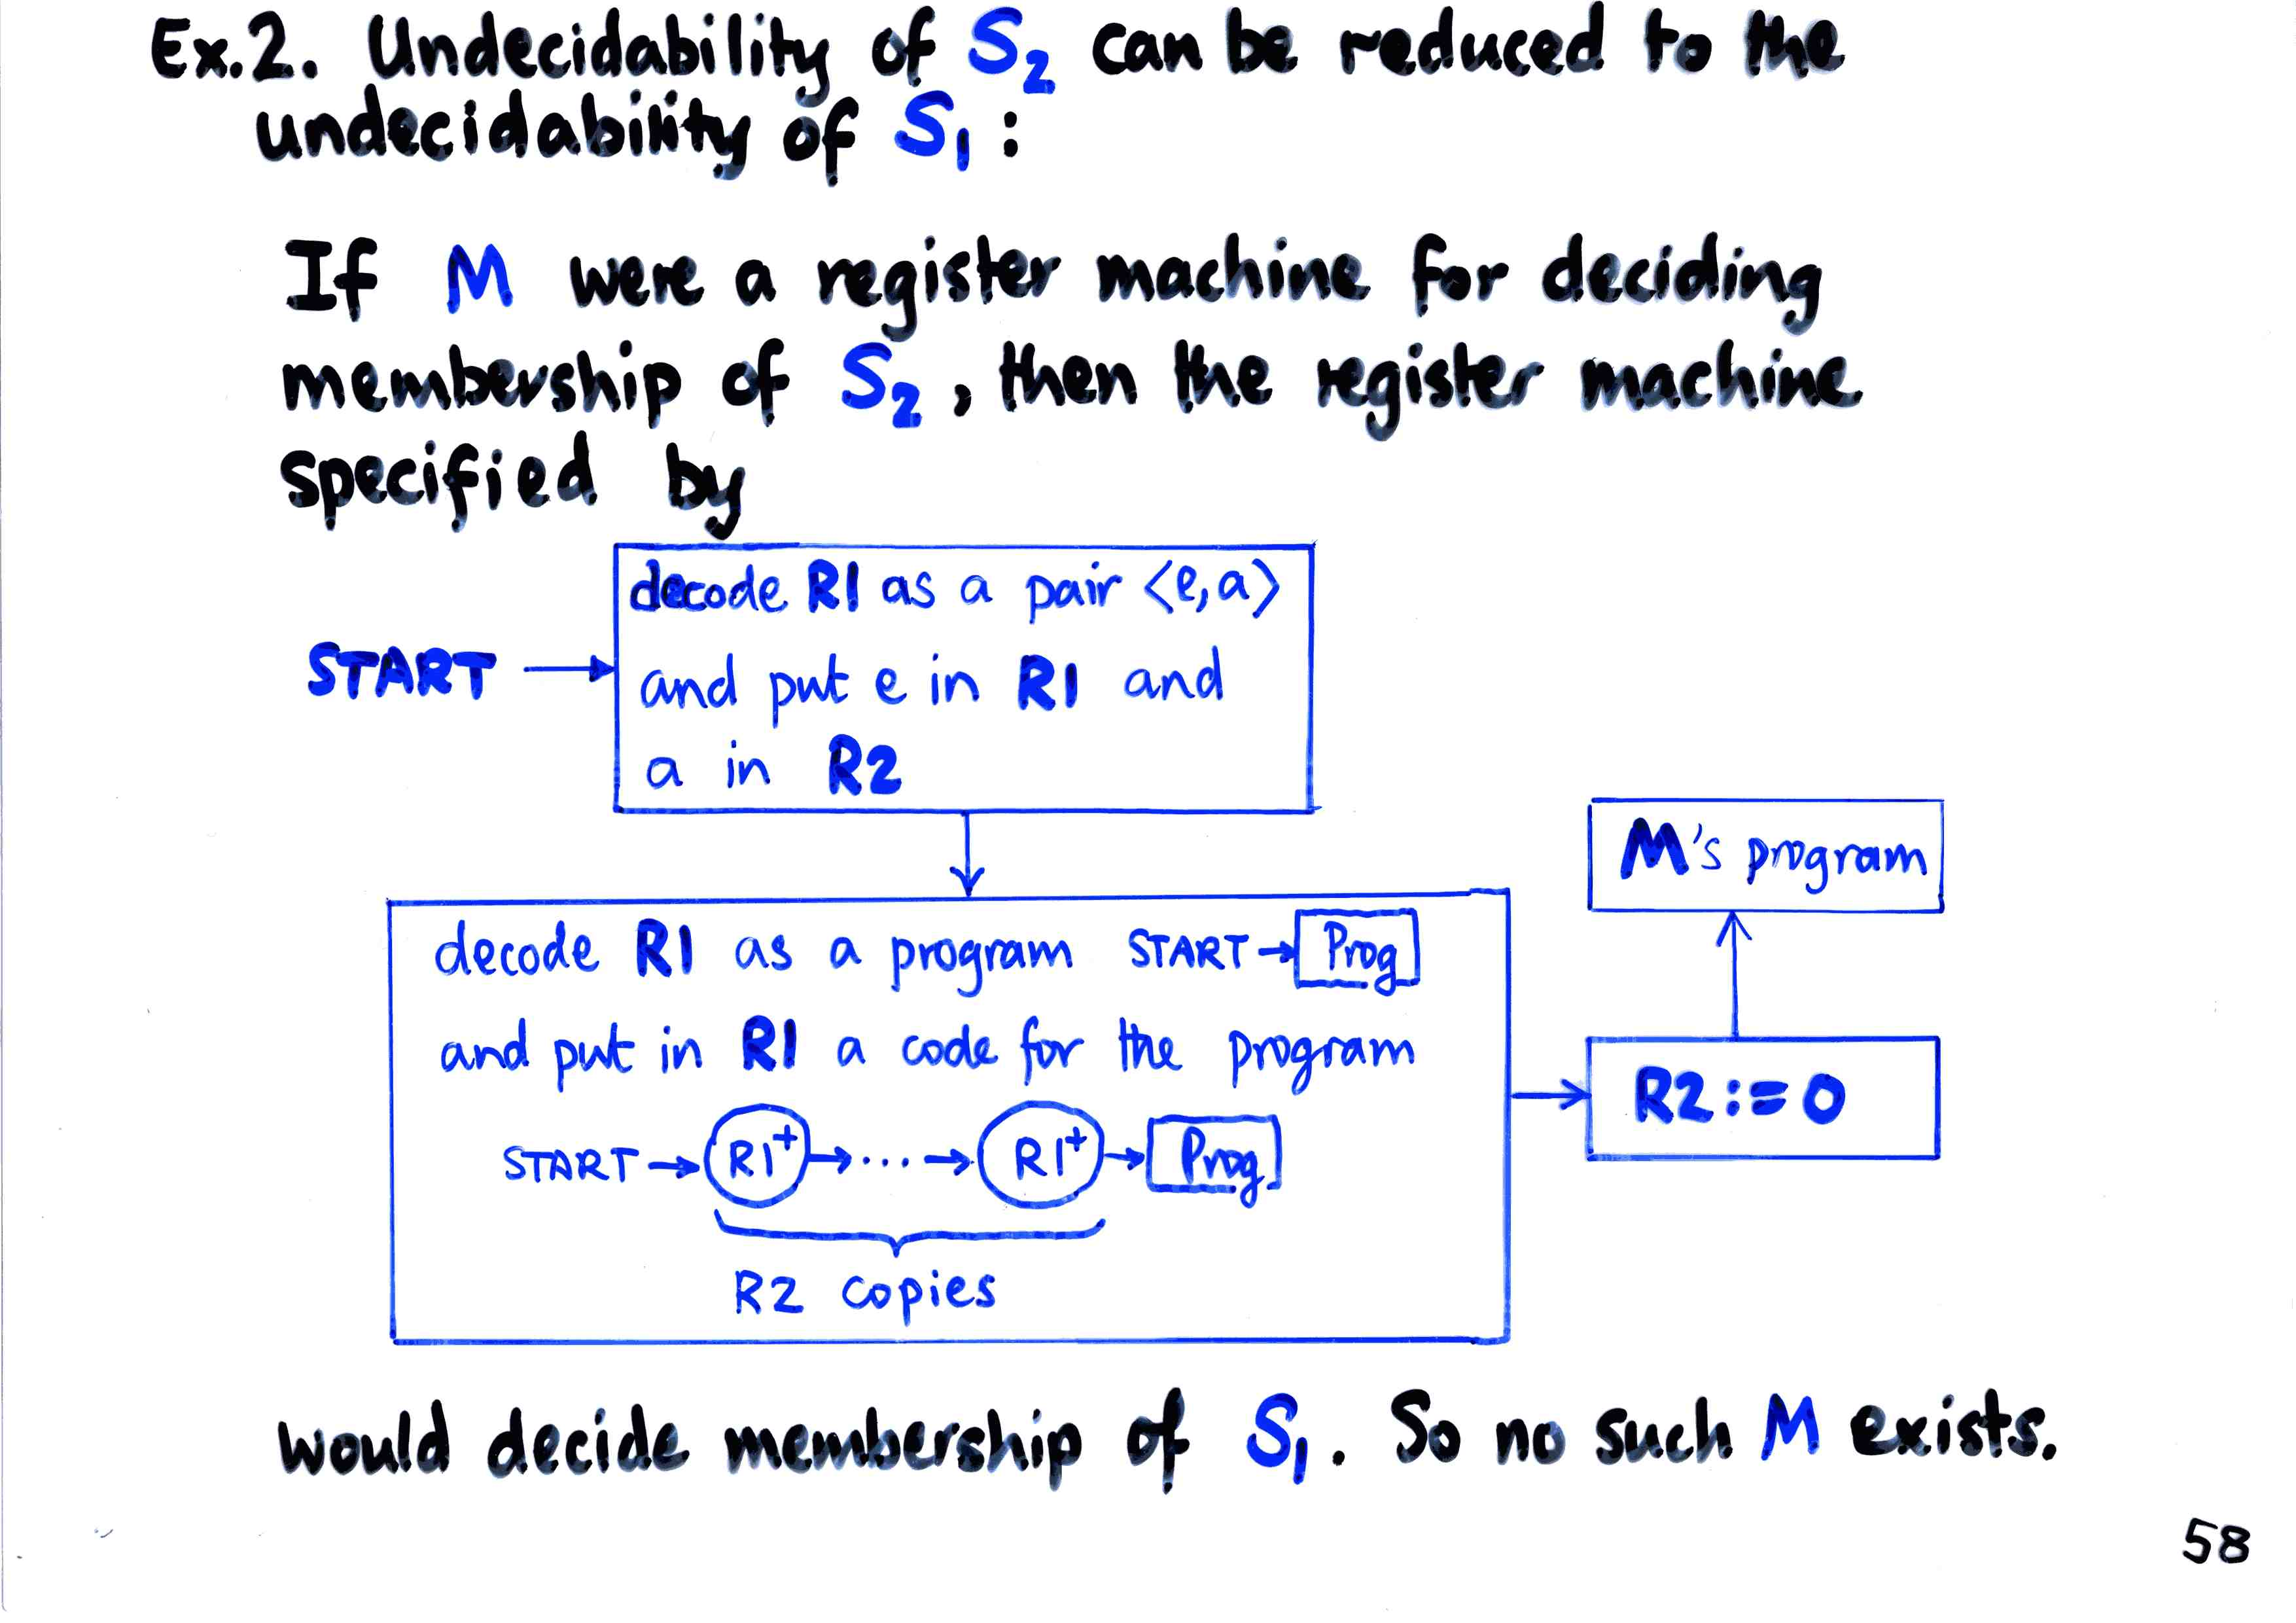 Ex.2. Undecidability of S2 can be reduced to the
undecidability of S1 :
If M were a register machine for deciding
membership of S2, then the register machine
specified by
decode R1 as a pair <e,a>
START → and put e in R1 and
a in R2
M's program
decode R1 as a program START → Prog
and put in R1 a code for the program
R2 := 0
START → R1+ → ... → R1+ → Prog
R2 copies
would decide membership of S1. So no such M exists.
58